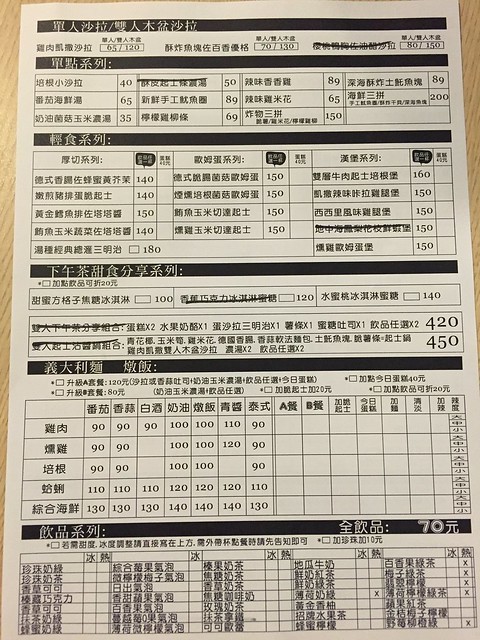 單人沙拉/雙人木盆沙拉
單人/雙人木盆 單人/雙人木盆 單人/雙人木盆
雞肉凱撒沙拉 65/120 酥炸魚塊佐百香優格 70/130 櫻桃鴨胸佐油醋沙拉 80/150
單點系列:
培根小沙拉 40 酥皮起士條濃湯 50 辣味香香雞 89 深海酥炸土魠魚塊 89
番茄海鮮湯 65 新鮮手工魷魚圈 89 辣味雞米花 65 海鮮三拼 200
手工魷魚圈/酥炸干貝/深海魚塊
奶油菌菇玉米濃湯 35 檸檬雞柳條 69 炸物三拼 150
脆薯/雞米花/檸檬雞柳
輕食系列:
厚切系列: 歐姆蛋系列: 漢堡系列:
德式香腸佐蜂蜜黃芥茉 140 德式脆腸菌菇歐姆蛋 150 雙層牛肉起士培根堡 160
嫩煎豬排蛋脆起士 140 煙燻培根菌菇歐姆蛋 150 凱撒辣味咔拉雞腿堡 150
黃金鱈魚排佐塔塔醬 150 鮪魚玉米切達起士 150 西西里風味雞腿堡 150
鮪魚玉米蔬菜佐塔塔醬 140 燻雞玉米切達起士 150 地中海鳳梨花枝鮮蝦堡 150
湯種經典總滙三明治 □ 180 燻雞歐姆蛋堡 150
下午茶甜食分享系列:
*□加點飲品可折20元
甜蜜方格子焦糖冰淇淋 □ 100 香蕉巧克力冰淇淋蜜糖 □ 120 水蜜桃冰淇淋蜜糖 □ 140
雙人下午茶分享組合: 蛋糕X2 水果奶酪X1 蛋沙拉三明治X1 薯條X1 蜜糖吐司X1 飲品任選X2 420
雙人起士沾醬鍋組合: 青花椰.玉米筍.雞米花.德國香腸.香蒜軟法麵包.土魠魚塊.脆薯條+起士鍋 450
雞肉凱撒雙人木盆沙拉 濃湯X2 飲品任選X2
義大利麵 燉飯:
*□ 升級A套餐:120元(沙拉或香蒜吐司+奶油玉米濃湯+飲品任選+今日蛋糕) *□ 加點今日蛋糕40元
*□ 升級B套餐:80元 (奶油玉米濃湯+飲品任選) *□ 加點飲品可折20元
番茄 香蒜 白酒 奶油 燉飯 青醬 泰式 A餐 B餐 加脆起士 今日蛋糕 加麵 清淡 加辣 辣度
雞肉 90 90 100 100 110 90 大中小
燻雞 90 90 100 100 120 90 大中小
培根 90 90 100 100 90 大中小
蛤蜊 110 110 110 120 120 120 110 大中小
綜合海鮮 130 130 130 140 140 140 130 大中小
飲品系列: 全飲品: 70元
*□若需甜度.冰度調整請直接寫在上方.需外帶杯點餐時請先告知即可 *□ 加珍珠加10元
冰 熱 冰 冰 熱 冰 熱 冰 熱
珍珠奶綠 綜合莓果氣泡 榛果奶茶 地瓜牛奶 百香果綠茶 x
珍珠奶茶 微檸檬梅子氣泡 焦糖奶茶 鮮奶紅茶 梅子綠茶 x
香草可可 日出氣泡 香草奶茶 鮮奶綠茶 翡翠檸檬 x
榛藏巧克力 香甜蘋果氣泡 焦糖咖啡奶 薄荷奶綠 x 薄荷檸檬綠茶 x
香草可可 百香果氣泡 玫瑰奶茶 黃金香柚 蘋果紅茶
抹茶拿鐵 蔓越莓0果氣泡 抹茶拿鐵 招牌水果茶 金桔梅子檸檬
蜂蜜奶綠 薄荷微檸檬氣泡 可可歐蕾 蜂蜜檸檬 野莓柳橙綠 x